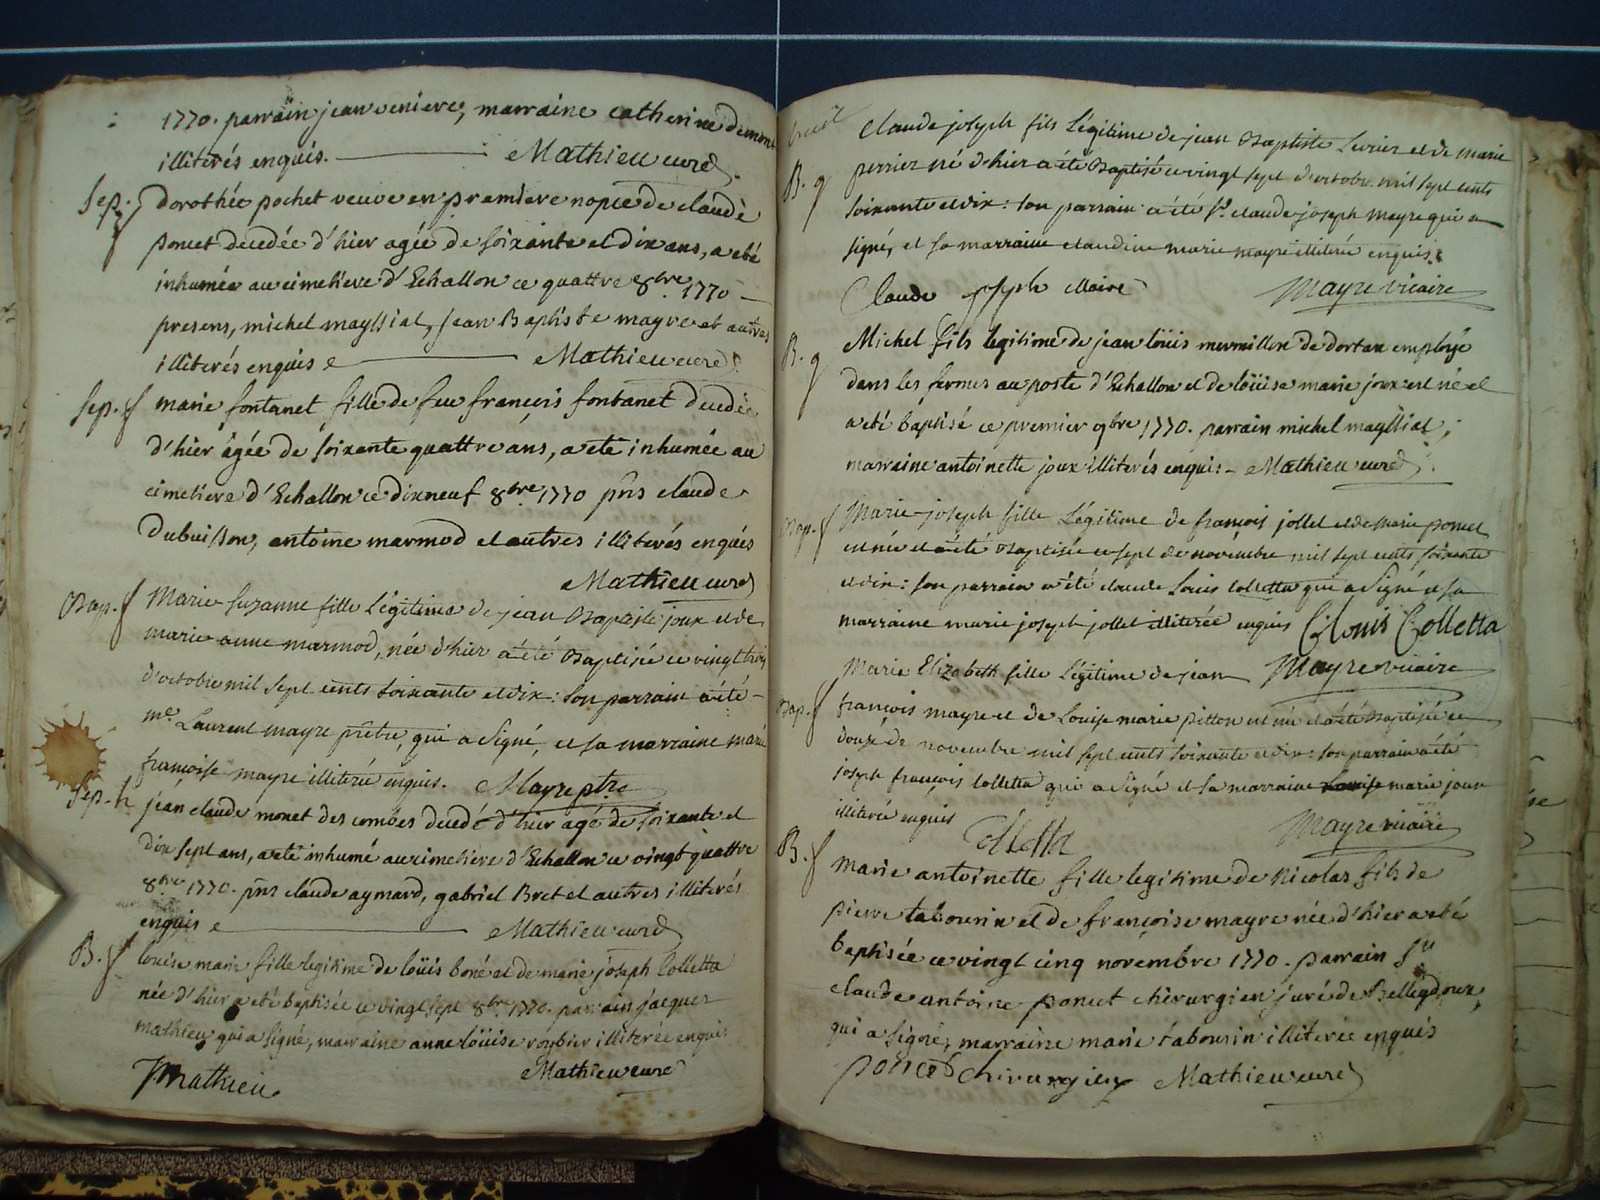 1770. parrain jean veniere, marraine catherine demont
illiterés enquis. Mathieu curé
Sep. dorothée pochet veuve en premiere nopce de claude
poncet decedée d'hier agée de soixante et dix ans, a eté
inhumée au cimetiere d'Echallon ce quattre 8bre 1770
presens, michel mayssiat, jean Baptiste mayre et autres
illiterés enquis Mathieu curé
Sep. marie fontanet fille de feu françois fontanet decedée
d'hier âgée de soixante quattre ans, a eté inhumée au
cimetiere d'Echallon ce dixneuf 8bre 1770 pns claude
Dubuisson, antoine marmod et autres illiterés enquis
Mathieu curé
Bap. Marie Suzanne fille Légitime de jean Baptiste joux et de
marie anne marmod, née d'hier a été Baptisée ce vingt trois
d'octobre mil sept cents soixante et dix : son parrain a eté
me Laurent mayre prêtre, qui a signé, et sa marraine marie
françoise mayre illiterée enquis. Mayre ptre
Sep. jean claude monet des combes decedé d'hier agé de soixante et
dix sept ans, a eté inhumé au cimetiere d'Echallon ce vingt quattre
8bre 1770. pns claude aymard, gabriel Bret et autres illiterés
enquis Mathieu curé
B. louise marie fille legitime de loüis boné et de marie joseph Colletta
née d'hier a eté baptisée ce vingt sept 8bre 1770. parrain jacques
mathieu qui a signé, marraine anne loüise roybier illiterée enquis
Mathieu Mathieu curé
Claude joseph fils Légitime de jean Baptiste Levrier et de marie
B. g perrier né d'hier a été Baptisé ce vingt sept d'octobre mil sept cents
soixante et dix : son parrain a été sr claude joseph mayre qui a
signé, et sa marraine claudine marie mayre illiterée enquis
Claude joseph Maire Mayre vicaire
B. g Michel fils legitime de jean loüis mermillon de dortan employé
dans les fermes au poste d'Echallon et de loüise marie joux est né et
a eté baptisé ce premier 9bre 1770. parrain michel mayssiat,
marraine antoinette joux illiterés enquis - Mathieu curé
Bap. Marie joseph fille Légitime de françois jollet et de Marie poncet
est née et a été Baptisée ce sept de novembre mil sept cents soixante
et dix : son parrain a été claude Louis colletta qui a Signé et sa
marraine marie joseph jollet illiterée enquis C Louis Colletta
Marie Elizabeth fille Légitime de jean Mayre vicaire
Bap. françois mayre et de Louise marie pitton est née et a été Baptisée ce
douze de novembre mil sept cents soixante et dix : son parrain a été
joseph françois colletta qui a Signé et sa marraine Louise marie joux
illiterée enquis Colletta Mayre vicaire
B. Marie antoinette fille legitime de Nicolas fils de
pierre tabourin et de françoise mayre née d'hier a eté
baptisée ce vingt cinq novembre 1770. parrain Sr
claude antoine poncet chirurgien juré de Bellegdoux,
qui a signé, marraine marie tabourin illiterée enquis
poncet chirurgien Mathieu curé